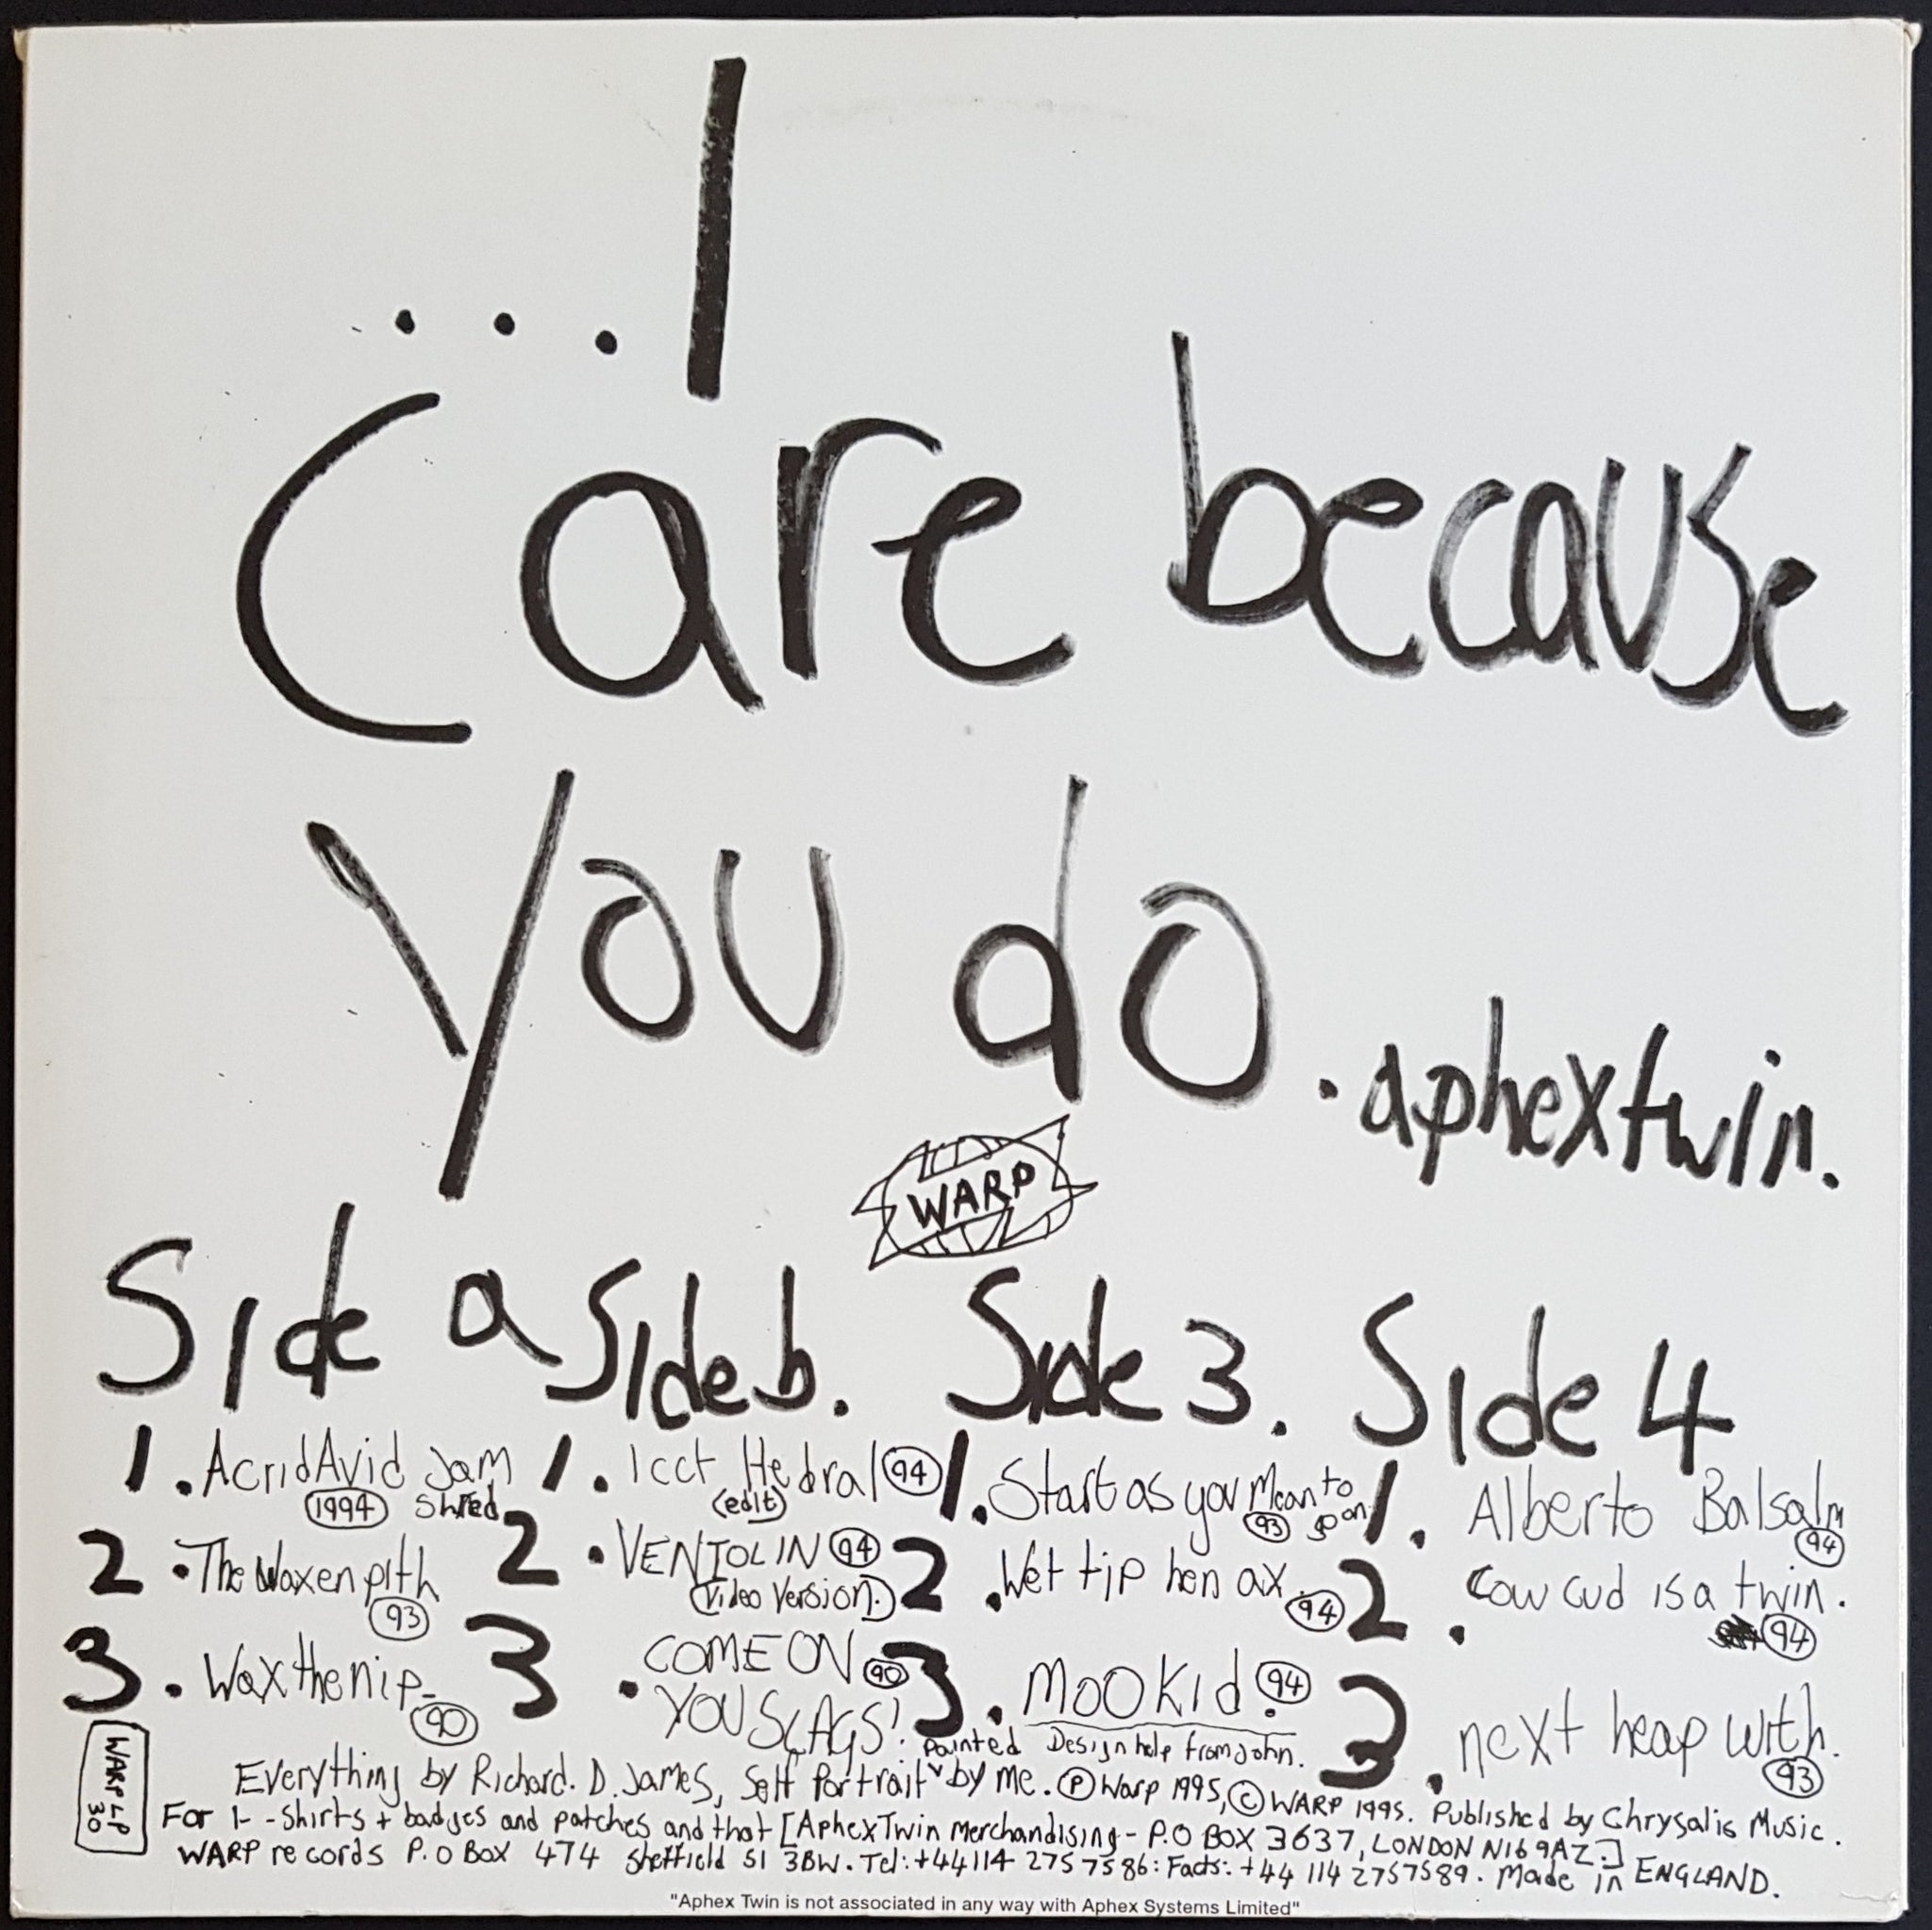 ...I
Care because
you do.
aphextwin.
WARP
Side a
1. AcridAvid Jam
Shred
1994
2. The Waxen pith
93
3. Wax the nip
90
Side b.
1. Icct Hedral 94
(edit)
2. VENTOLIN 94
(Video Version.)
3. COME ON 90
YOU SLAGS!
Side 3.
1. Start as you Mean to
93 go on
2. Wet tip hen ax.
94
3. MOOKid 94
Side 4
1. Alberto Balsalm
94
2. Cow cud is a twin.
94
3. next heap with.
93
WARP LP
30
painted Design help from John.
Everything by Richard. D. James, Self Portrait ˅ by me. Ⓟ Warp 1995, © WARP 1995. Published by Chrysalis Music.
For T-Shirts + badges and patches and that [AphexTwin Merchandising - P.O BOX 3637, LONDON N16 9AZ.]
WARP records P.O Box 474 Sheffield S1 3BW. Tel: +44114 2757586: Facts: +44 114 2757589. Made in ENGLAND.
"Aphex Twin is not associated in any way with Aphex Systems Limited"